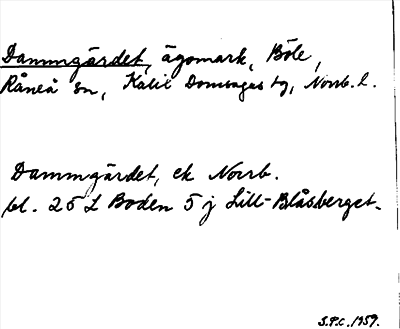 Dammgärdet, ägomark, Böle,
Råneå sn, Kalix Domsagas tg, Norrb. l.
Dammgärdet, ek Norrb.
bl. 25 L Boden 5 j Lill-Blåsberget.
S.P.C. 1959.